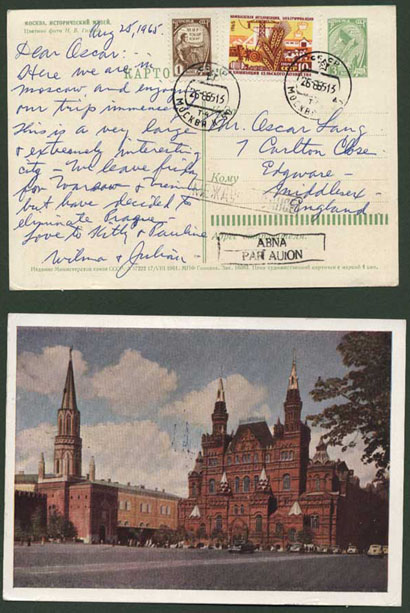 МОСКВА. ИСТОРИЧЕСКИЙ МУЗЕЙ.
Цветное фото Н.
Aug 25, 1965.
Dear Oscar: -
Here we are in
Moscow, and enjoy
our trip immensely
This is a very large
& extremely interesting
city - We leave friday
for Warsaw &
but have decided to
eliminate Prague -
Love to Kitty & Pauline
Wilma & Julian
КАРТО
МОСКВА
2686515
МОСКВА
2686515
Mr. Oscar Lang
7 Carlton Close
Edgware -
Middlesex -
England
Кому
МЕЖДУ
Адрес
АВИА
PAR AVION
Издание Министерства связи СССР.